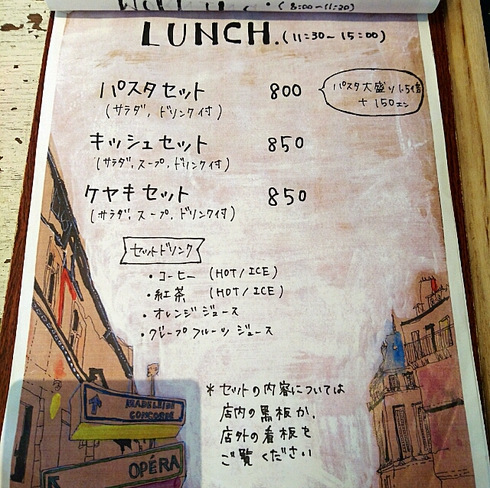 (8:00~11:20)
LUNCH.(11:30~15:00)
パスタセット 800
(サラダ、ドリンク付)
パスタ大盛り1.5倍
+150エン
キッシュセット 850
(サラダ、スープ、ドリンク付)
ケヤキセット 850
(サラダ、スープ、ドリンク付)
セットドリンク
・コーヒー (HOT/ICE)
・紅茶 (HOT/ICE)
・オレンジジュース
・グレープフルーツジュース
*セットの内容については
店内の黒板か、
店外の看板を
ご覧ください
MADELEINE
CONCORDE
OPÉRA